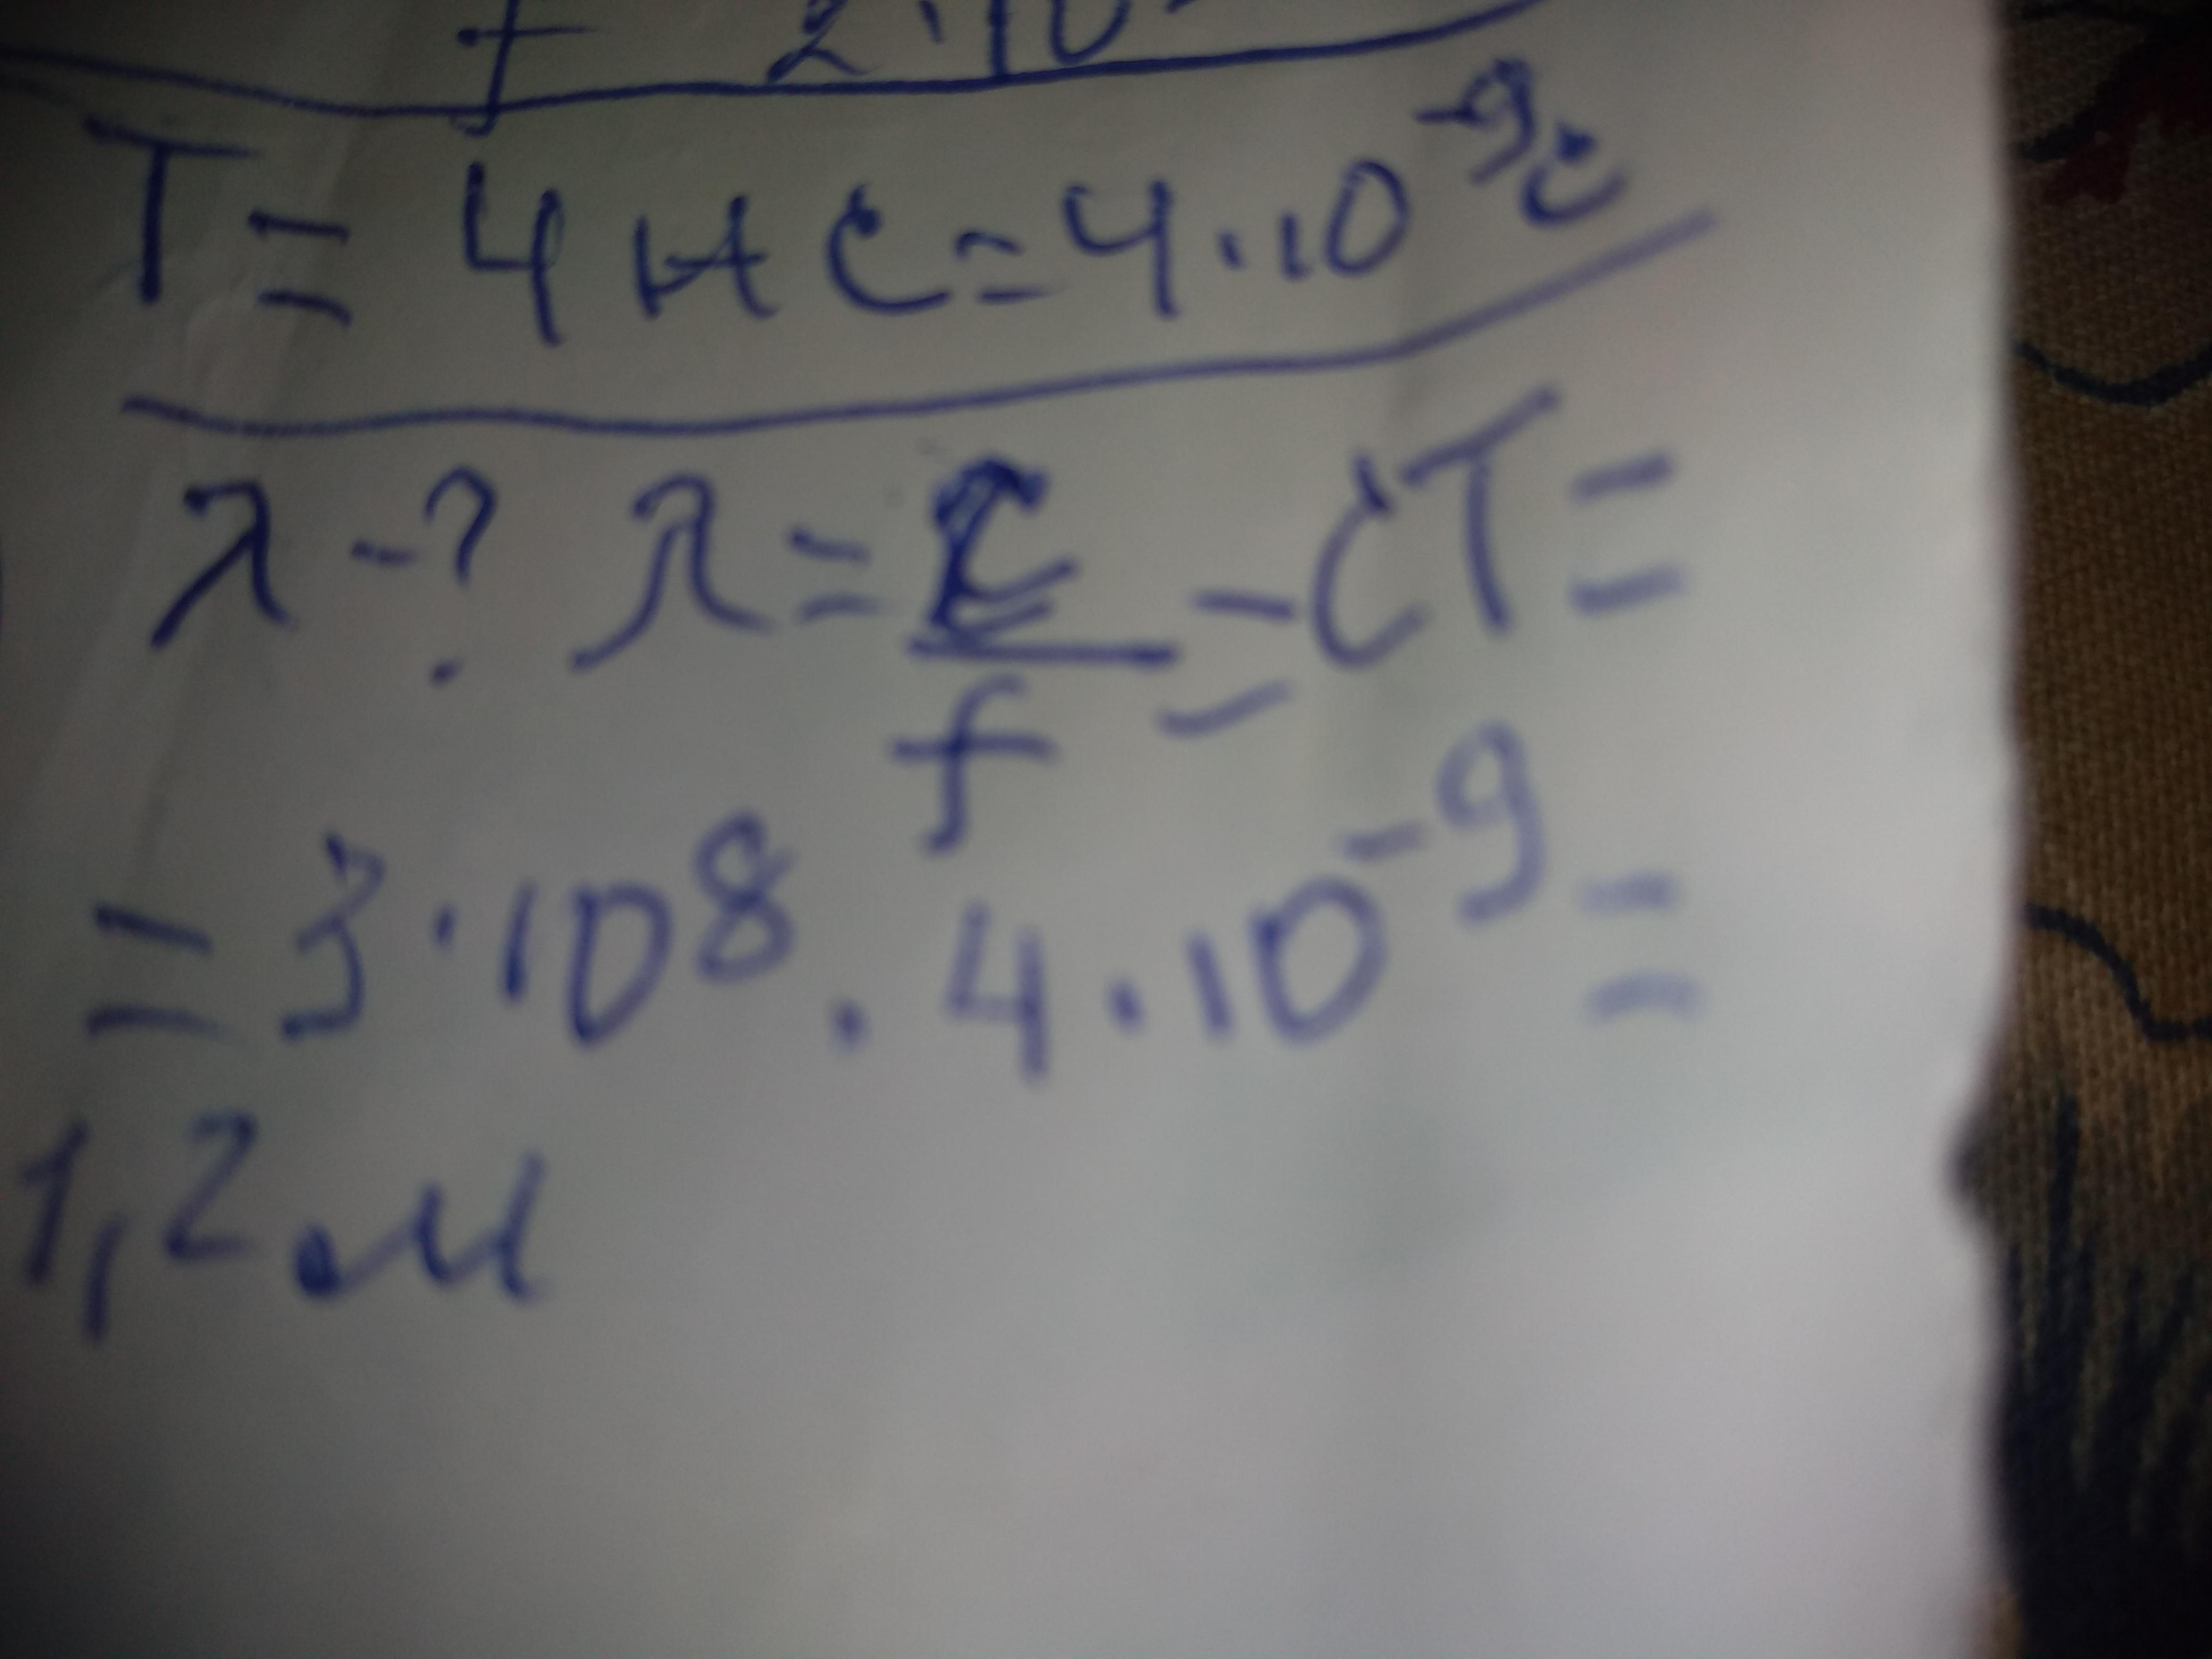 f 2·10
T = 4 нс = 4·10⁻⁹с
λ - ? λ = c/f = cT =
= 3·10⁸ · 4·10⁻⁹ =
1,2 м